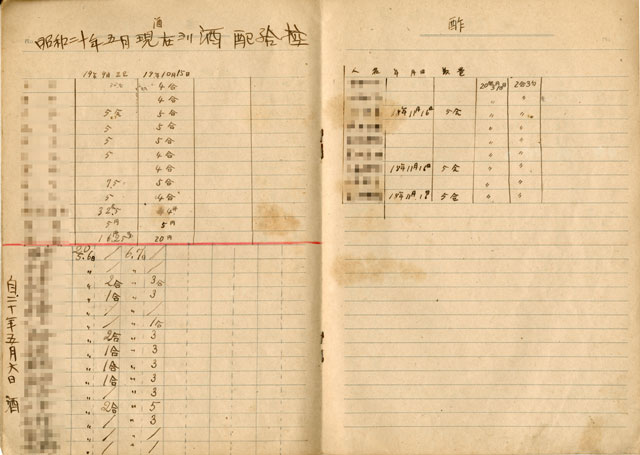 酒
昭和二十年五月現在ニテ酒配給
19年9月2日 19年10月15日
4合
4合
5合 5合
5 5合
5 5合
5 4合
4合
7.5 5合
5 4合
5円 5円
20円
20.
5.6日 / 6.7日 /
〃 / 〃 /
〃 2合 〃 3合
〃 1合 〃 3
〃 / 〃 /
〃 / 〃 1合
〃 2合 〃 3
〃 1合 〃 3
〃 1合 〃 3
〃 1合 〃 3
〃 / 〃 3
〃 2合 〃 5
〃 / 〃 /
〃 / 〃 /
自二十年五月六日 酒
酢
人名 年月日 数量
19年11月16日 5合 〃 〃
〃 〃
〃 〃
〃 〃
19年11月16日 5合 〃 〃
〃 〃
19年11月16日 5合 〃 〃